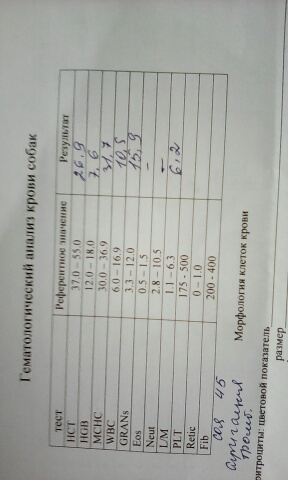 Гематологический анализ крови собак
тест Референтное значение Результат
HCT 37.0 – 55.0 26,9
HGB 12.0 – 18.0 7,6
MCHC 30.0 – 36.9 31,7
WBC 6.0 – 16.9 10,5
GRANs 3.3 – 12.0 15,9
Eos 0.5 – 1.5 -
Neut 2.8 – 10.5
L/M 1.1 – 6.3
PLT 175 - 500 6,2
Retic 0 – 1.0
Fib 200 - 400
соэ 45
тромб.
Морфология клеток крови
ритроциты: цветовой показатель
размер